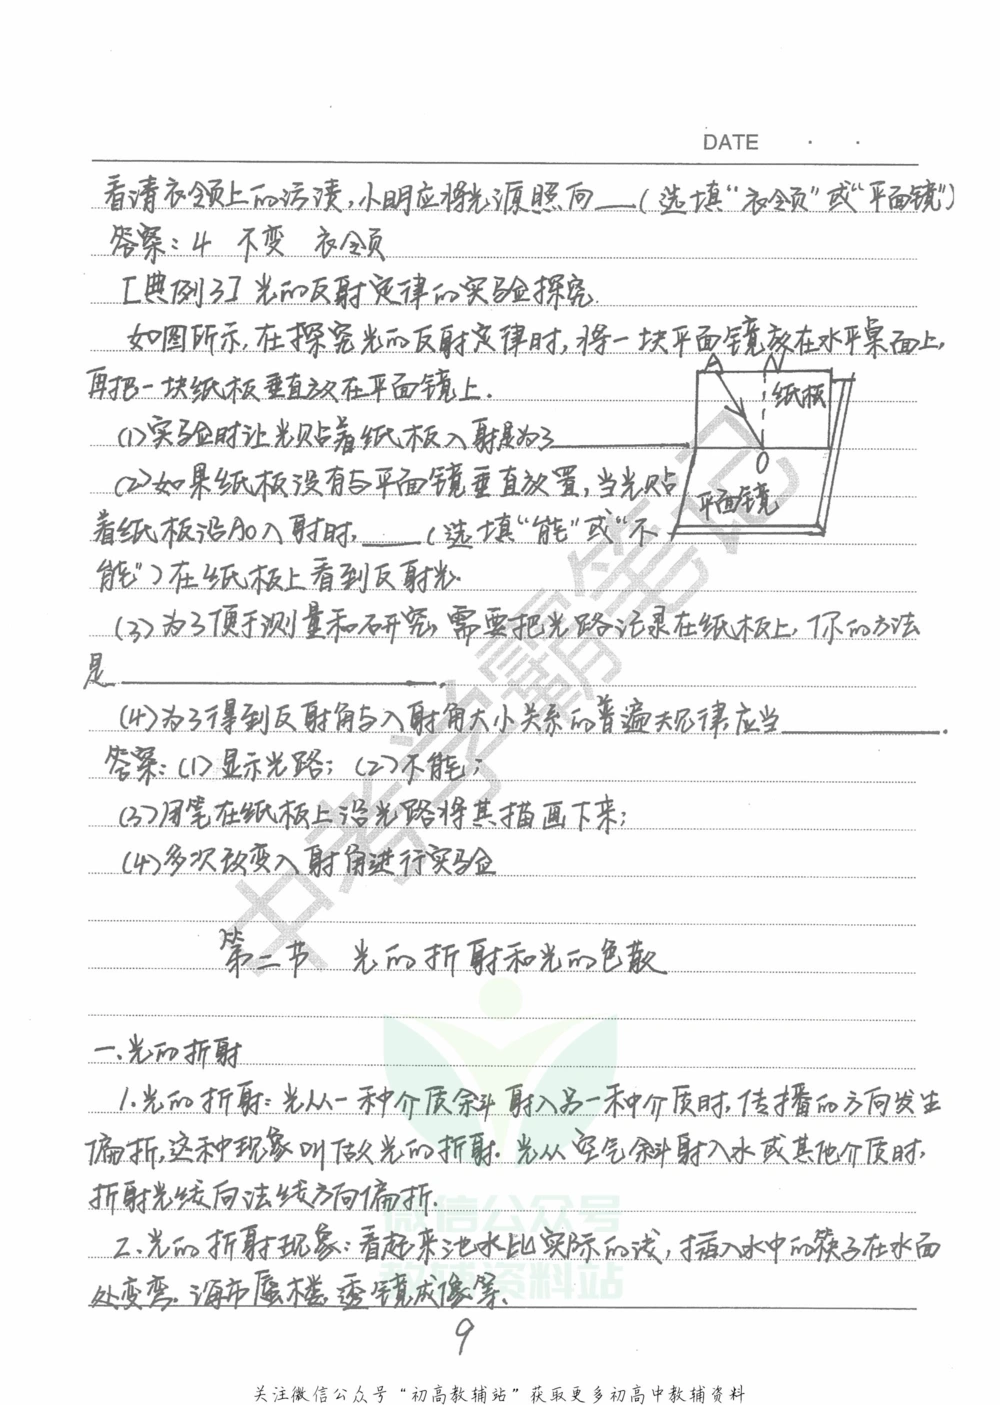 DATE · ·
看清衣领上的污渍,小明应将光源照向___(选填"衣领"或"平面镜")
答案:4 不变 衣领
[典例3]光的反射定律的实验探究.
如图所示,在探究光的反射定律时,将一块平面镜放在水平桌面上,
再把一块纸板垂直放在平面镜上.
A N
纸板
O
平面镜
(1)实验时让光贴着纸板入射是为了___
(2)如果纸板没有与平面镜垂直放置,当光贴
着纸板沿AO入射时,___(选填"能"或"不
能")在纸板上看到反射光.
(3)为了便于测量和研究,需要把光路记录在纸板上,你的方法
是___.
(4)为了得到反射角与入射角大小关系的普遍规律,应当___.
答案:(1)显示光路;(2)不能;
(3)用笔在纸板上沿光路将其描画下来;
(4)多次改变入射角进行实验
第二节 光的折射和光的色散
一.光的折射
1.光的折射:光从一种介质斜射入另一种介质时,传播的方向发生
偏折,这种现象叫做光的折射.光从空气斜射入水或其他介质时,
折射光线向法线方向偏折.
2.光的折射现象:看起来池水比实际的浅,插入水中的筷子在水面
处变弯.海市蜃楼.透镜成像等.
9
中考学霸笔记
微信公众号
教辅资料站
关注微信公众号"初高教辅站"获取更多初高中教辅资料